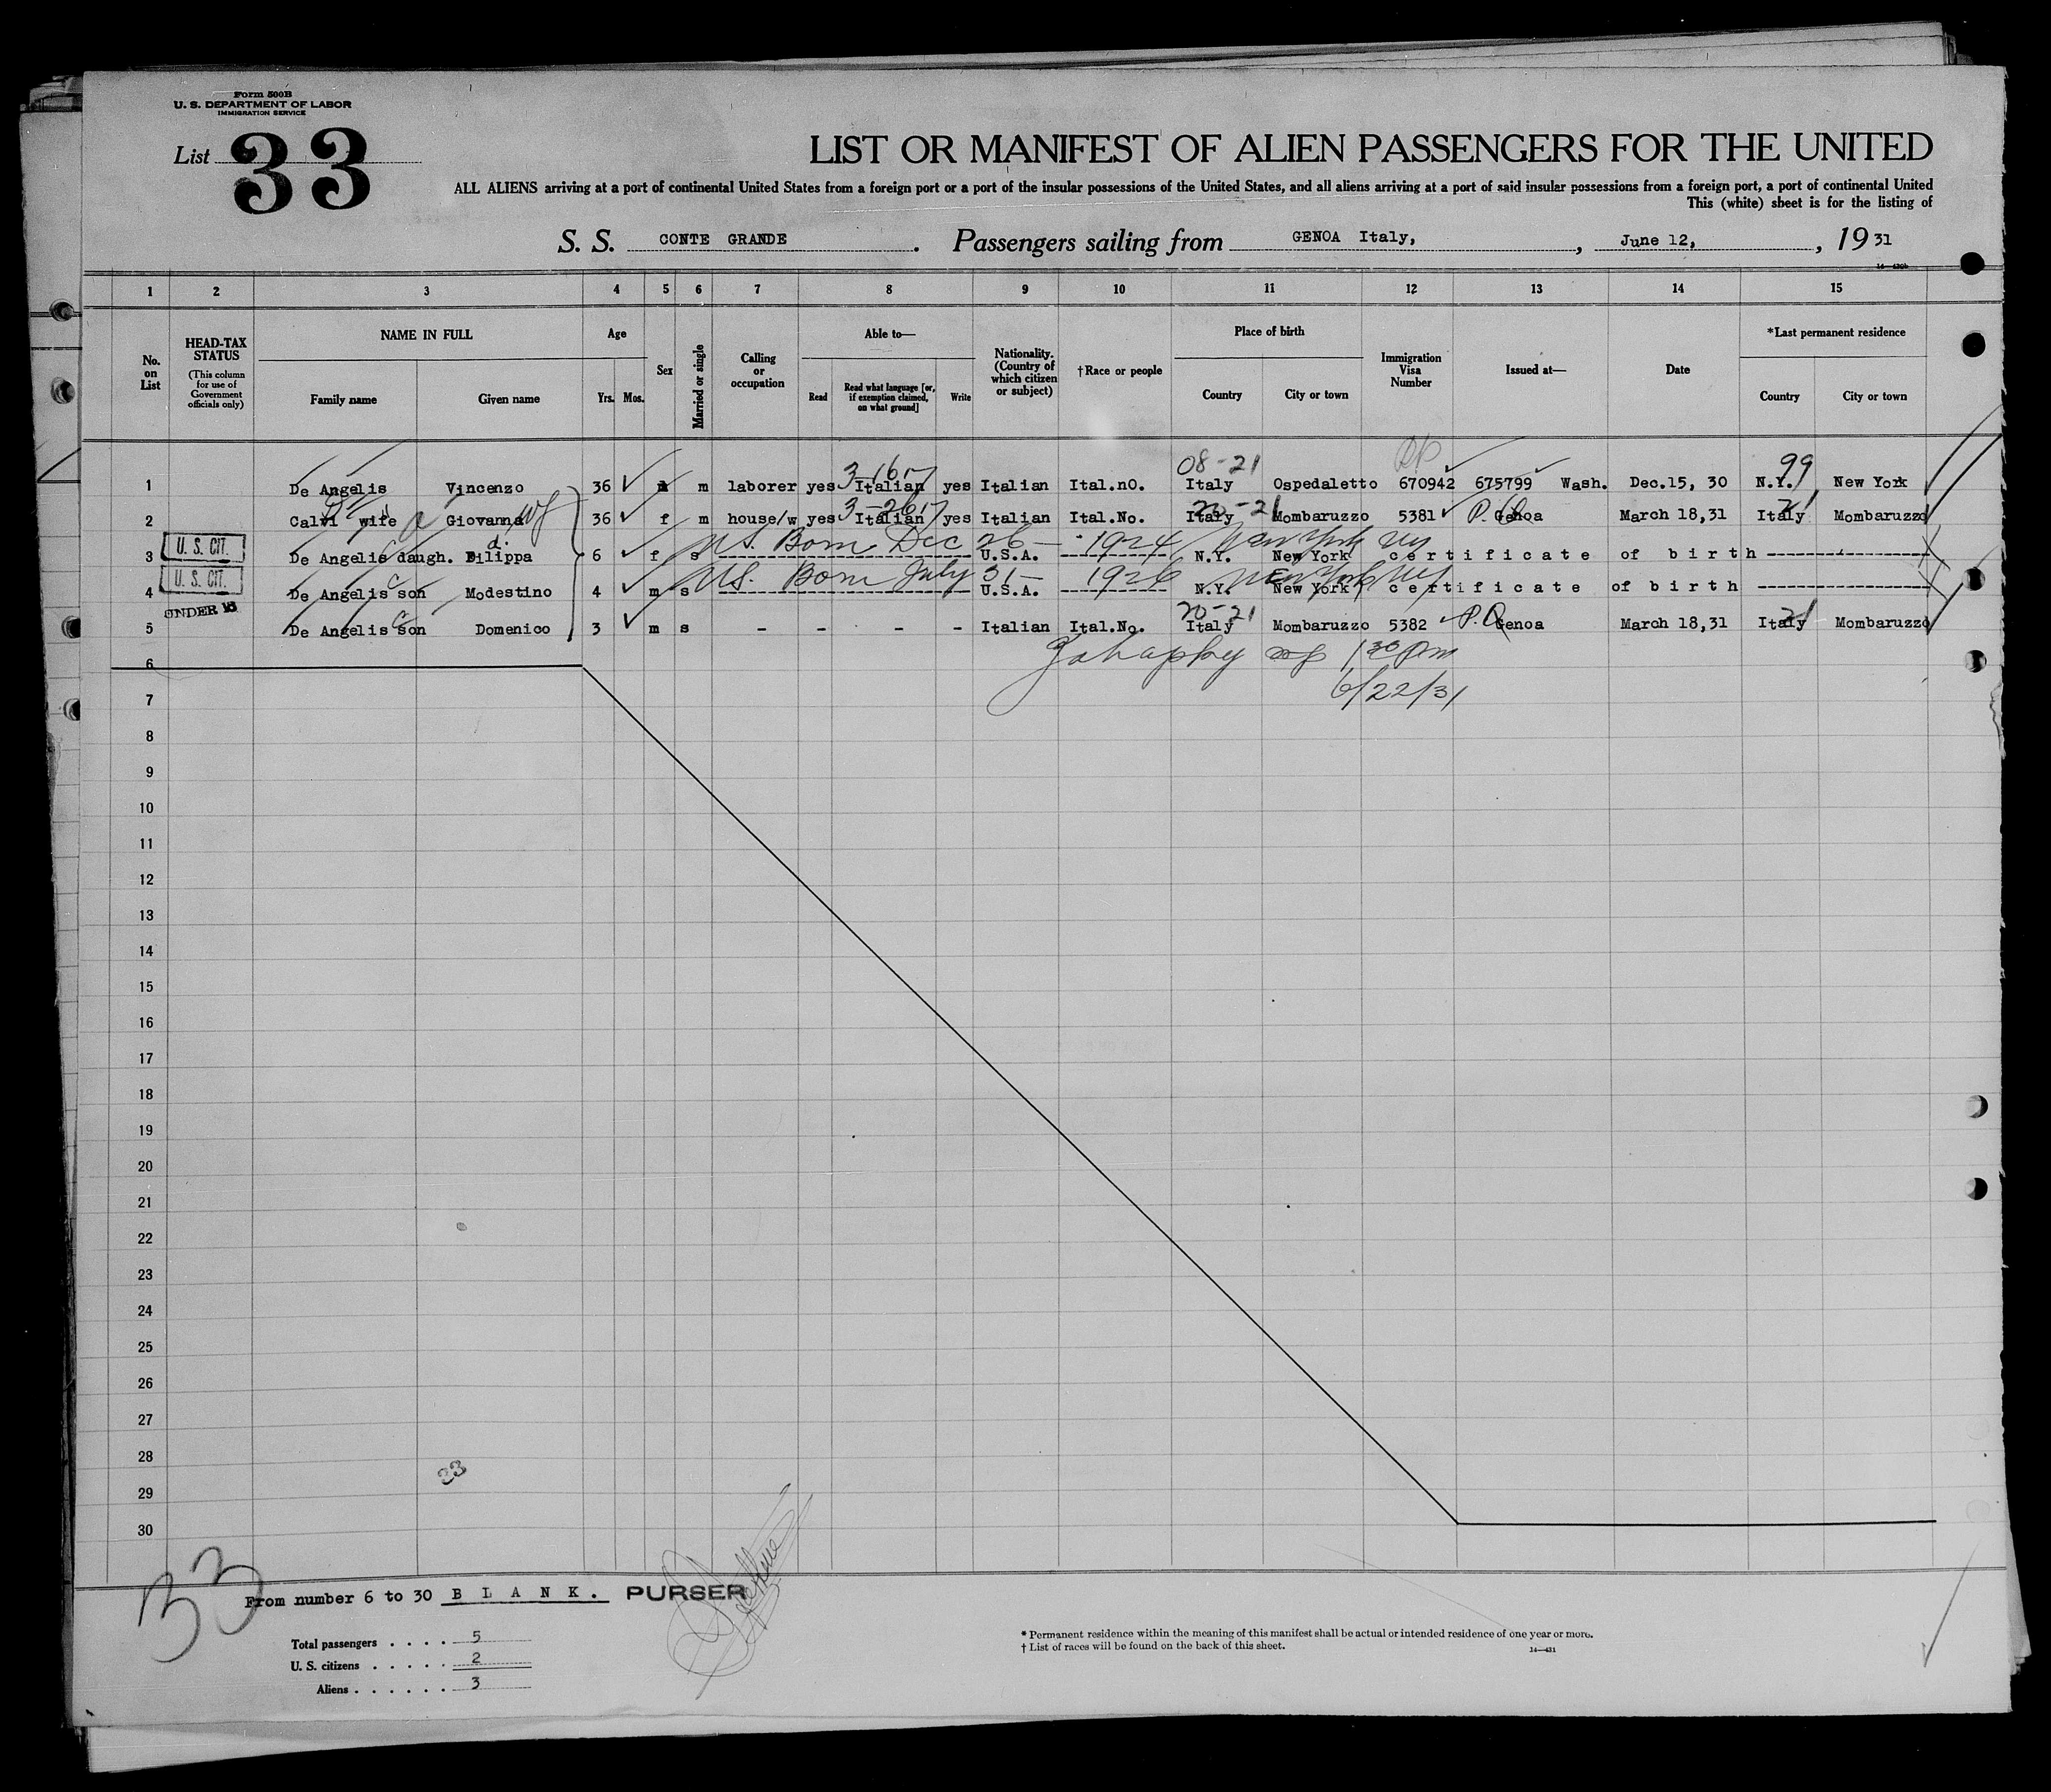 Form 500B
U. S. DEPARTMENT OF LABOR
IMMIGRATION SERVICE
List 33
LIST OR MANIFEST OF ALIEN PASSENGERS FOR THE UNITED
ALL ALIENS arriving at a port of continental United States from a foreign port or a port of the insular possessions of the United States, and all aliens arriving at a port of said insular possessions from a foreign port, a port of continental United
This (white) sheet is for the listing of
S. S. CONTE GRANDE . Passengers sailing from GENOA Italy, , June 12, , 19 31
14—430b
1 2 3 4 5 6 7 8 9 10 11 12 13 14 15
No. on List
HEAD-TAX STATUS (This column for use of Government officials only)
NAME IN FULL
Family name Given name
Age
Yrs. Mos.
Sex
Married or single
Calling or occupation
Able to—
Read Read what language [or, if exemption claimed, on what ground] Write
Nationality. (Country of which citizen or subject)
†Race or people
Place of birth
Country City or town
Immigration Visa Number
Issued at—
Date
*Last permanent residence
Country City or town
08-21 99
1 De Angelis Vincenzo 36 m m laborer yes Italian yes Italian Ital.nO. Italy Ospedaletto 670942 675799 Wash. Dec.15, 30 N.Y. New York
20-21
2 Calvi wife Giovanna wf 36 f m house/w yes Italian yes Italian Ital.No. Italy Mombaruzzo 5381 Genoa March 18,31 Italy 21 Mombaruzzo
U.S. Born Dec 26- 1924 New York NY
U. S. CIT.
3 De Angelis daugh. Filippa 6 f s U.S.A. N.Y. New York certificate of birth
U.S. Born July 31- 1926 New York NY
U. S. CIT.
4 De Angelis son Modestino 4 m s U.S.A. N.Y. New York certificate of birth
UNDER 16
20-21
5 De Angelis son Domenico 3 m s - - - - Italian Ital.No. Italy Mombaruzzo 5382 Genoa March 18,31 Italy 21 Mombaruzzo
6
130 pm
7
6/22/31
8
9
10
11
12
13
14
15
16
17
18
19
20
21
22
23
24
25
26
27
28
33
29
30
33
From number 6 to 30 B L A N K. PURSER
Total passengers . . . . 5
U. S. citizens . . . . . 2
Aliens . . . . . . 3
* Permanent residence within the meaning of this manifest shall be actual or intended residence of one year or more.
† List of races will be found on the back of this sheet.
14—431